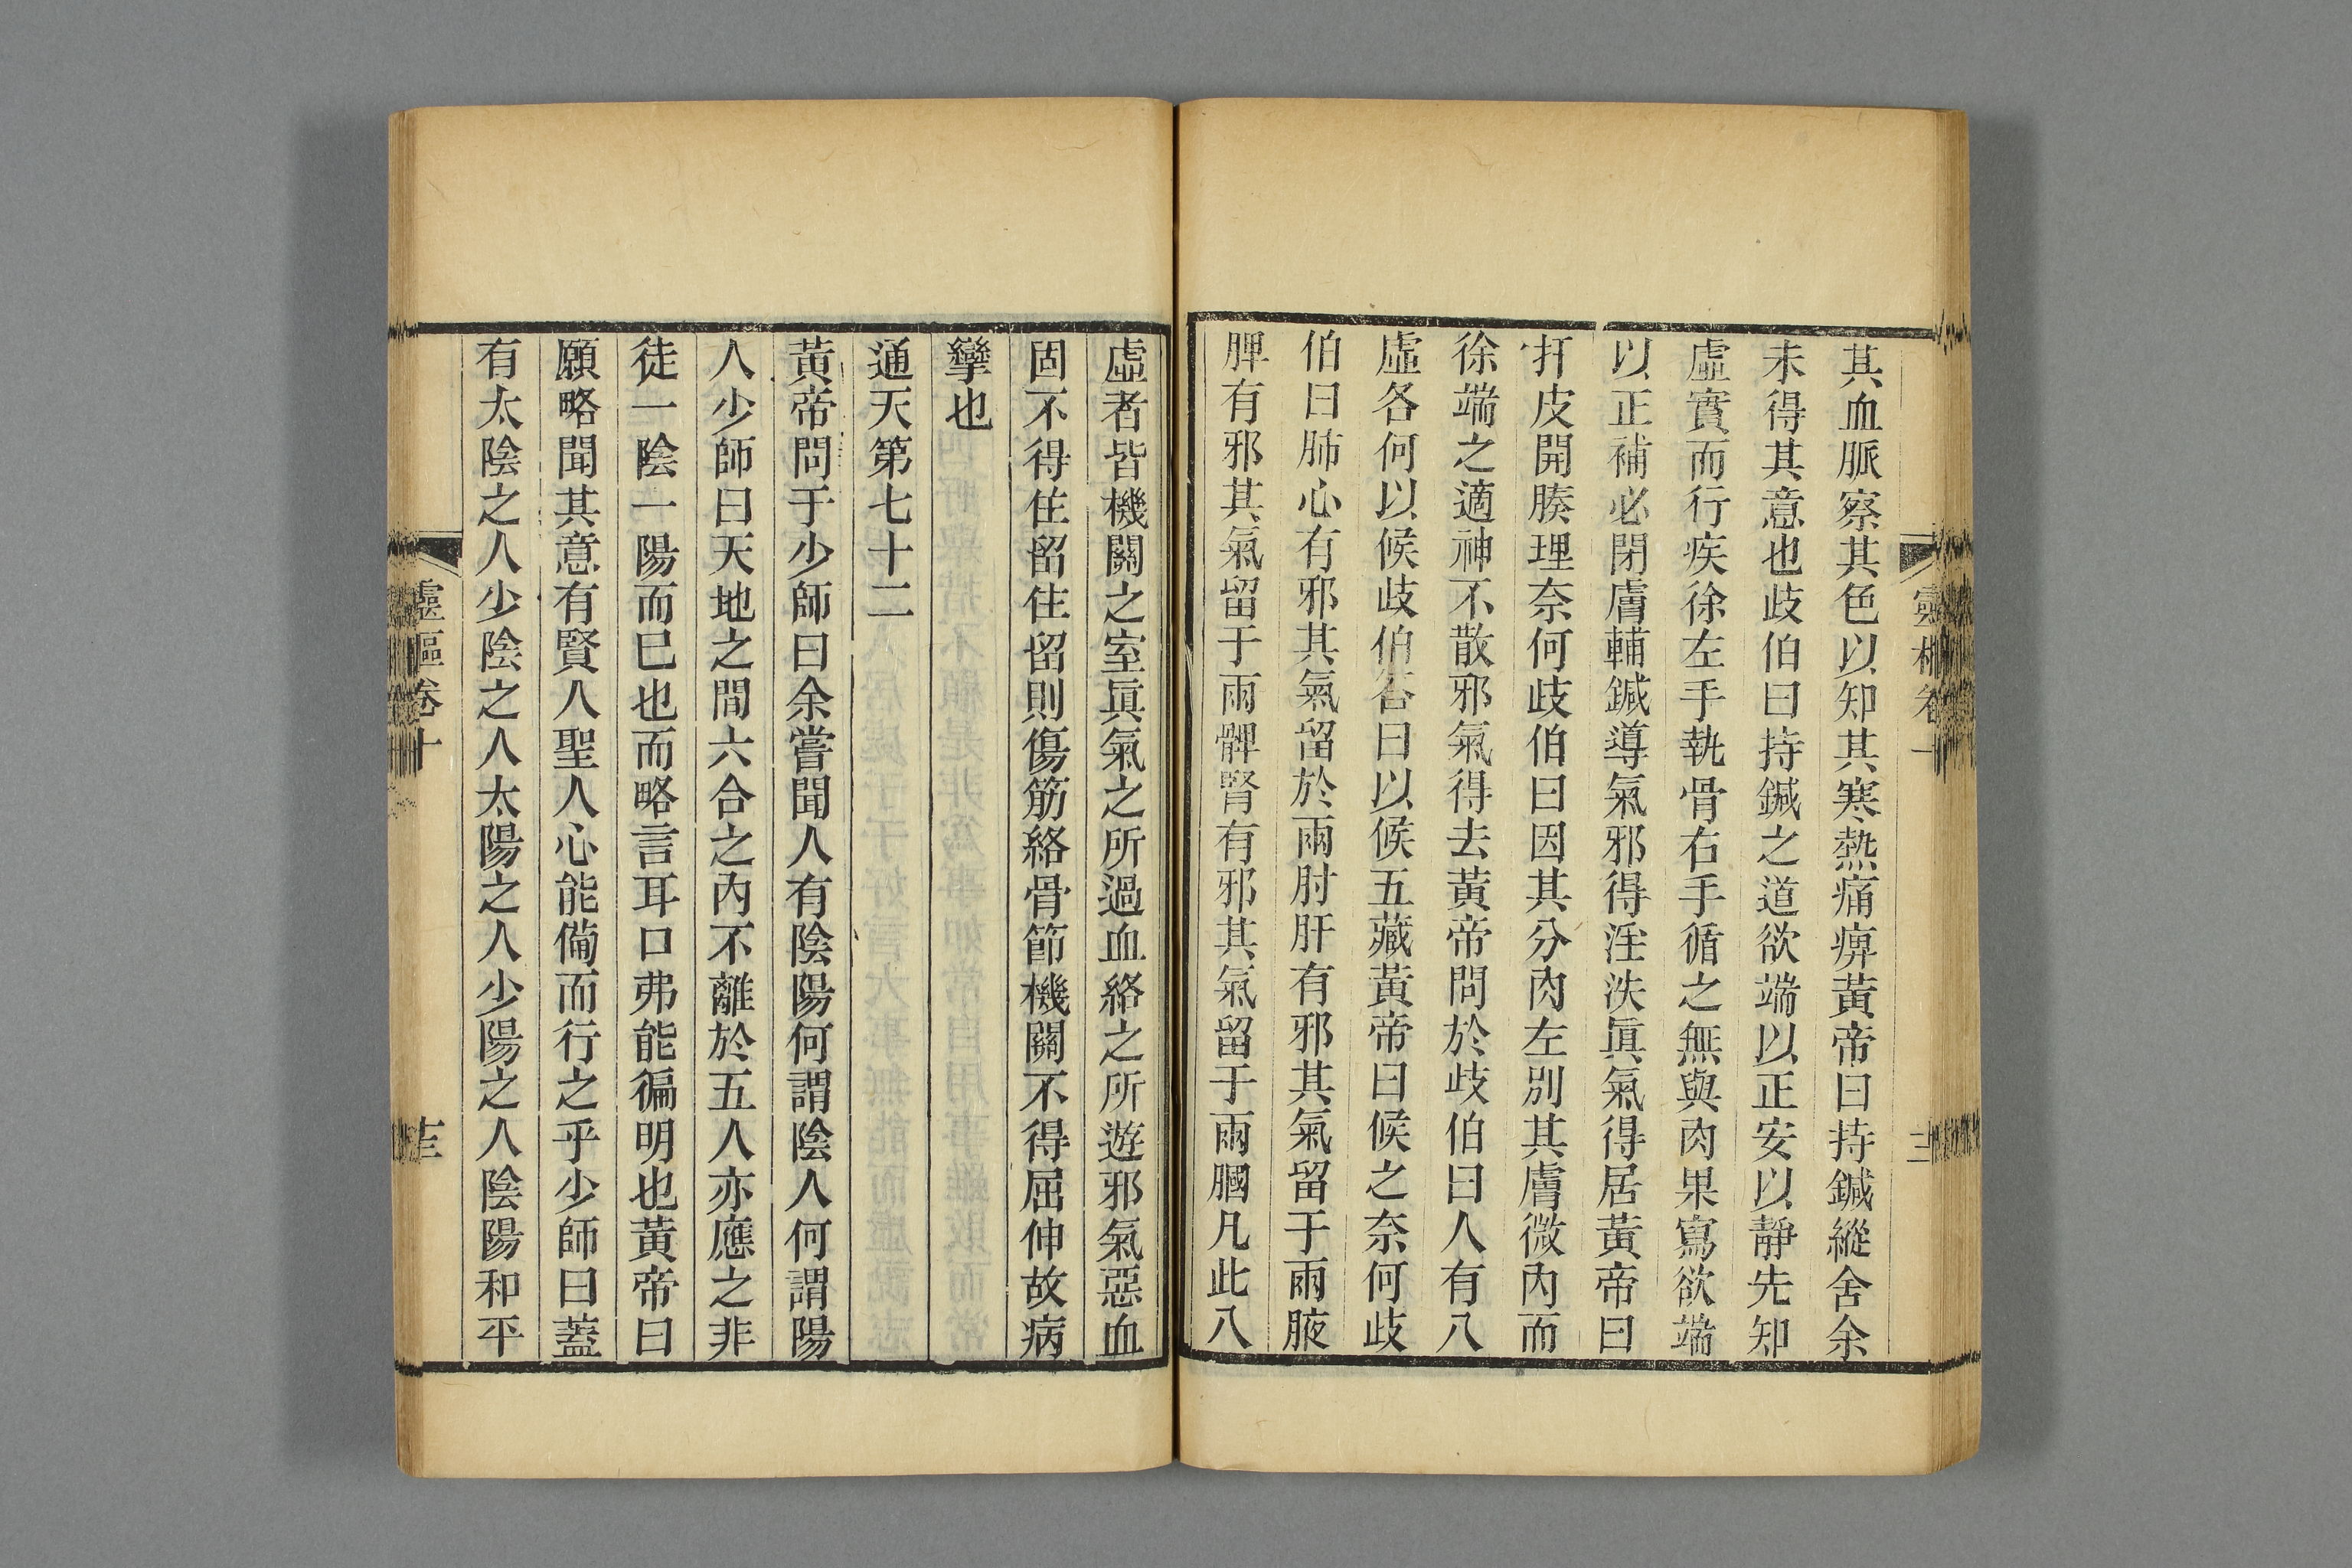 其血脈察其色以知其寒熱痛痹黃帝曰持鍼縱舍余
未得其意也歧伯曰持鍼之道欲端以正安以靜先知
虛實而行疾徐左手執骨右手循之無與肉果寫欲端
以正補必閉膚輔鍼導氣邪得淫泆眞氣得居黃帝曰
扞皮開腠理奈何歧伯曰因其分肉左別其膚微內而
徐端之適神不散邪氣得去黃帝問於歧伯曰人有八
虛各何以候歧伯答曰以候五藏黃帝曰候之奈何歧
伯曰肺心有邪其氣留於兩肘肝有邪其氣留于兩腋
脾有邪其氣留于兩髀腎有邪其氣留于兩膕凡此八
虛者皆機關之室眞氣之所過血絡之所遊邪氣惡血
固不得住留住留則傷筋絡骨節機關不得屈伸故病
攣也
通天第七十二
黃帝問于少師曰余嘗聞人有陰陽何謂陰人何謂陽
人少師曰天地之間六合之內不離於五人亦應之非
徒一陰一陽而巳也而略言耳口弗能徧明也黃帝曰
願略聞其意有賢人聖人心能僃而行之乎少師曰蓋
有太陰之人少陰之人太陽之人少陽之人陰陽和平
靈樞卷十